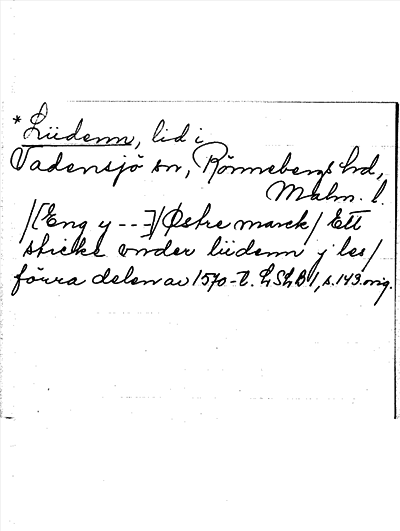 *Lüdenn, lid i
Vadensjö sn, Rönnebergs hd,
Malm. l.
/[Eng y ---]/Østre marck/ Ett
sticke vnder lüdenn j les/
förra delen av 1570-t. LSLB 1, s. 143 orig.